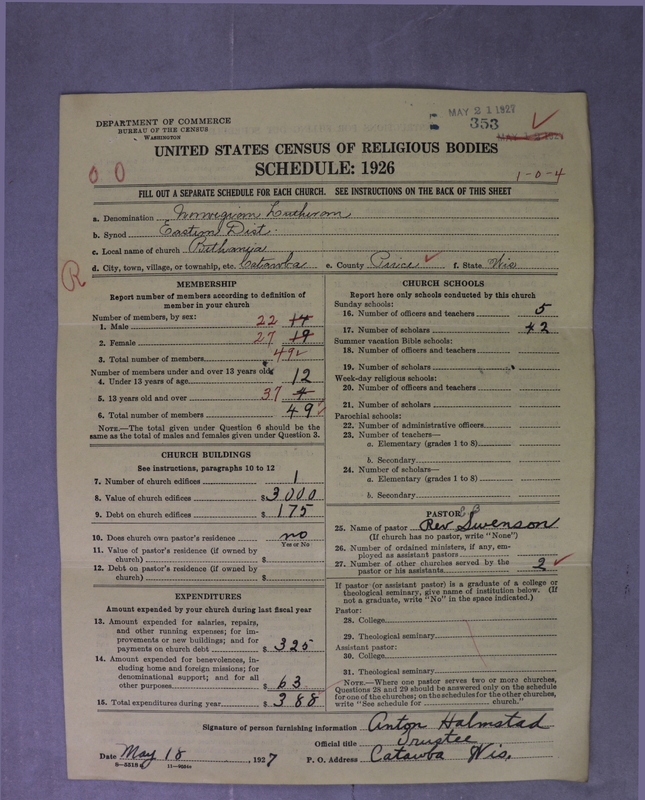 DEPARTMENT OF COMMERCE
BUREAU OF THE CENSUS
WASHINGTON
MAY 21 1927
353
UNITED STATES CENSUS OF RELIGIOUS BODIES
SCHEDULE: 1926
1-0-4
0 0
FILL OUT A SEPARATE SCHEDULE FOR EACH CHURCH. SEE INSTRUCTIONS ON THE BACK OF THIS SHEET
a. Denomination Norwegian Lutheran
b. Synod Eastern Dist.
c. Local name of church Bethania
d. City, town, village, or township, etc. Catawba e. County Price f. State Wis
R
MEMBERSHIP
Report number of members according to definition of
member in your church
Number of members, by sex:
1. Male 22 14
2. Female 27 19
3. Total number of members 49
Number of members under and over 13 years old:
4. Under 13 years of age 12
5. 13 years old and over 37
6. Total number of members 49
NOTE.—The total given under Question 6 should be
same as the total of males and females given under Question 3.
CHURCH BUILDINGS
See instructions, paragraphs 10 to 12
7. Number of church edifices 1
8. Value of church edifices $3000
9. Debt on church edifices $175
10. Does church own pastor's residence no
Yes or No
11. Value of pastor's residence (if owned by
church) $
12. Debt on pastor's residence (if owned by
church) $
EXPENDITURES
Amount expended by your church during last fiscal year
13. Amount expended for salaries, repairs,
and other running expenses; for im-
provements or new buildings; and for
payments on church debt $325
14. Amount expended for benevolences, in-
cluding home and foreign missions; for
denominational support; and for all
other purposes $63
15. Total expenditures during year $388
CHURCH SCHOOLS
Report here only schools conducted by this church
Sunday schools:
16. Number of officers and teachers 5
17. Number of scholars 42
Summer vacation Bible schools:
18. Number of officers and teachers
19. Number of scholars
Week-day religious schools:
20. Number of officers and teachers
21. Number of scholars
Parochial schools:
22. Number of administrative officers
23. Number of teachers—
a. Elementary (grades 1 to 8)
b. Secondary
24. Number of scholars—
a. Elementary (grades 1 to 8)
b. Secondary
PASTOR
25. Name of pastor Rev Swenson
(If church has no pastor, write "None")
26. Number of ordained ministers, if any, em-
ployed as assistant pastors
27. Number of other churches served by the
pastor or his assistants 2
If pastor (or assistant pastor) is a graduate of a college or
theological seminary, give name of institution below. (If
not a graduate, write "No" in the space indicated.)
Pastor:
28. College
29. Theological seminary
Assistant pastor:
30. College
31. Theological seminary
NOTE.—Where one pastor serves two or more churches,
Questions 28 and 29 should be answered only on the schedule
for one of the churches; on the schedules for the other churches,
write "See schedule for church."
Signature of person furnishing information Anton Halmstad
Official title Trustee
Date May 18, 1927 P. O. Address Catawba Wis.